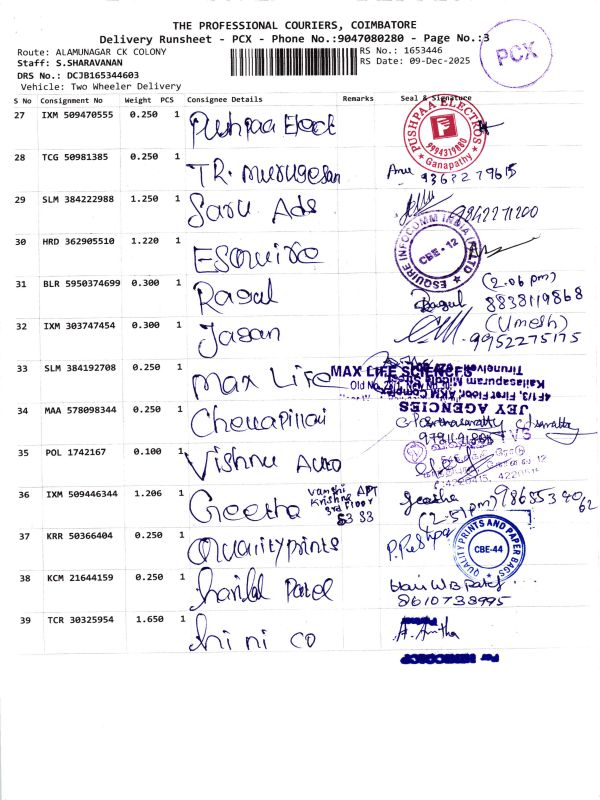 THE PROFESSIONAL COURIERS, COIMBATORE
Delivery Runsheet - PCX - Phone No.:9047080280 - Page No.:3
Route: ALAMUNAGAR CK COLONY
RS No.: 1653446
Staff: S.SHARAVANAN
RS Date: 09-Dec-2025
DRS No.: DCJB165344603
Vehicle: Two Wheeler Delivery
PCX
S No Consignment No Weight PCS Consignee Details Remarks Seal & Signature
27 IXM 509470555 0.250 1 Pushpaa Elect
PUSHPAA ELECTROS
9994319880
Ganapathy
28 TCG 50981385 0.250 1 TR. Murugesan
29 SLM 384222988 1.250 1 Saru Ads
9842271200
30 HRD 362905510 1.220 1 Esquire
ESQUIRE INFOCOMM INDIA (P) LTD
CBE - 12
31 BLR 5950374699 0.300 1 Ragul
(2.06 pm)
Ragul 8838119868
32 IXM 303747454 0.300 1 Jasan
(Umesh)
9952275175
33 SLM 384192708 0.250 1 Max Life
MAX LIFE SCIENCES
Kailasapuram Middle Street
Tirunelveli
4F1/3, First Floor, AKM Complex
JEY AGENCIES
34 MAA 578098344 0.250 1
35 POL 1742167 0.100 1 Vishnu Auto
36 IXM 509446344 1.206 1 Geetha
Vamshi
Krishna APT
3rd Floor
S3 33
Geetha 9865534062
(2.51pm)
37 KRR 50366404 0.250 1 Quality prints
P. Pushpa
QUALITY PRINTS AND PAPER BAGS
CBE-44
38 KCM 21644159 0.250 1 Harilal Patel
8610738995
39 TCR 30325954 1.650 1 hi ni co
A. Anitha